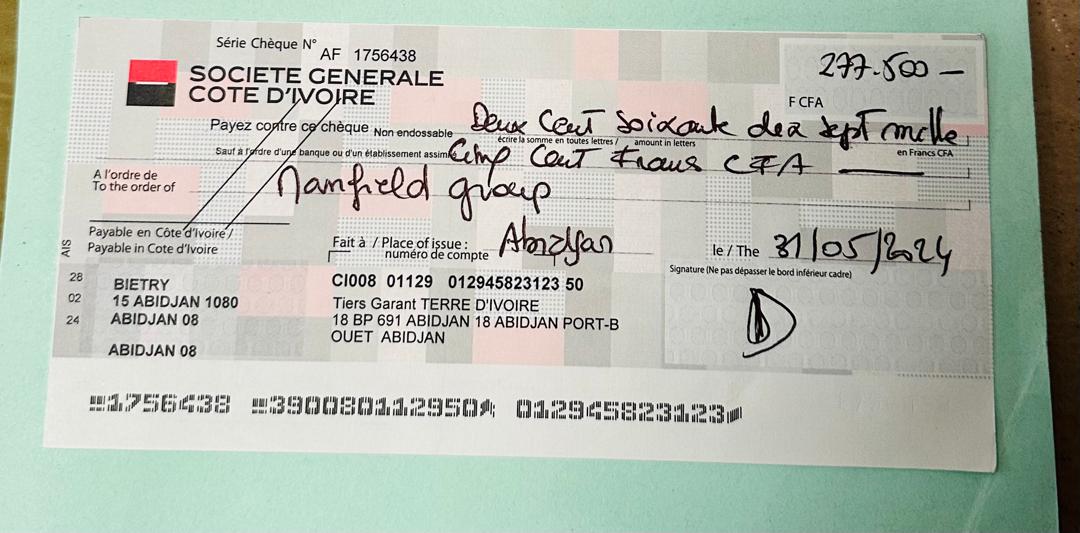 Série Chèque N° AF 1756438
277.500 —
SOCIETE GENERALE
COTE D'IVOIRE
F CFA
Payez contre ce chèque Non endossable Deux Cent Soixante dix sept mille
écrire la somme en toutes lettres / amount in letters
en Francs CFA
Sauf à l'ordre d'une banque ou d'un établissement assim Cinq Cent Francs CFA
A l'ordre de
To the order of
Manfield group
Payable en Côte d'Ivoire /
Payable in Cote d'Ivoire
Fait à / Place of issue : Abidjan
numéro de compte
le / The 31/05/2024
Signature (Ne pas dépasser le bord inférieur cadre)
AIS
28
02
24
BIETRY
15 ABIDJAN 1080
ABIDJAN 08
ABIDJAN 08
CI008 01129 012945823123 50
Tiers Garant TERRE D'IVOIRE
18 BP 691 ABIDJAN 18 ABIDJAN PORT-B
OUET ABIDJAN
1756438 390080112950 012945823123